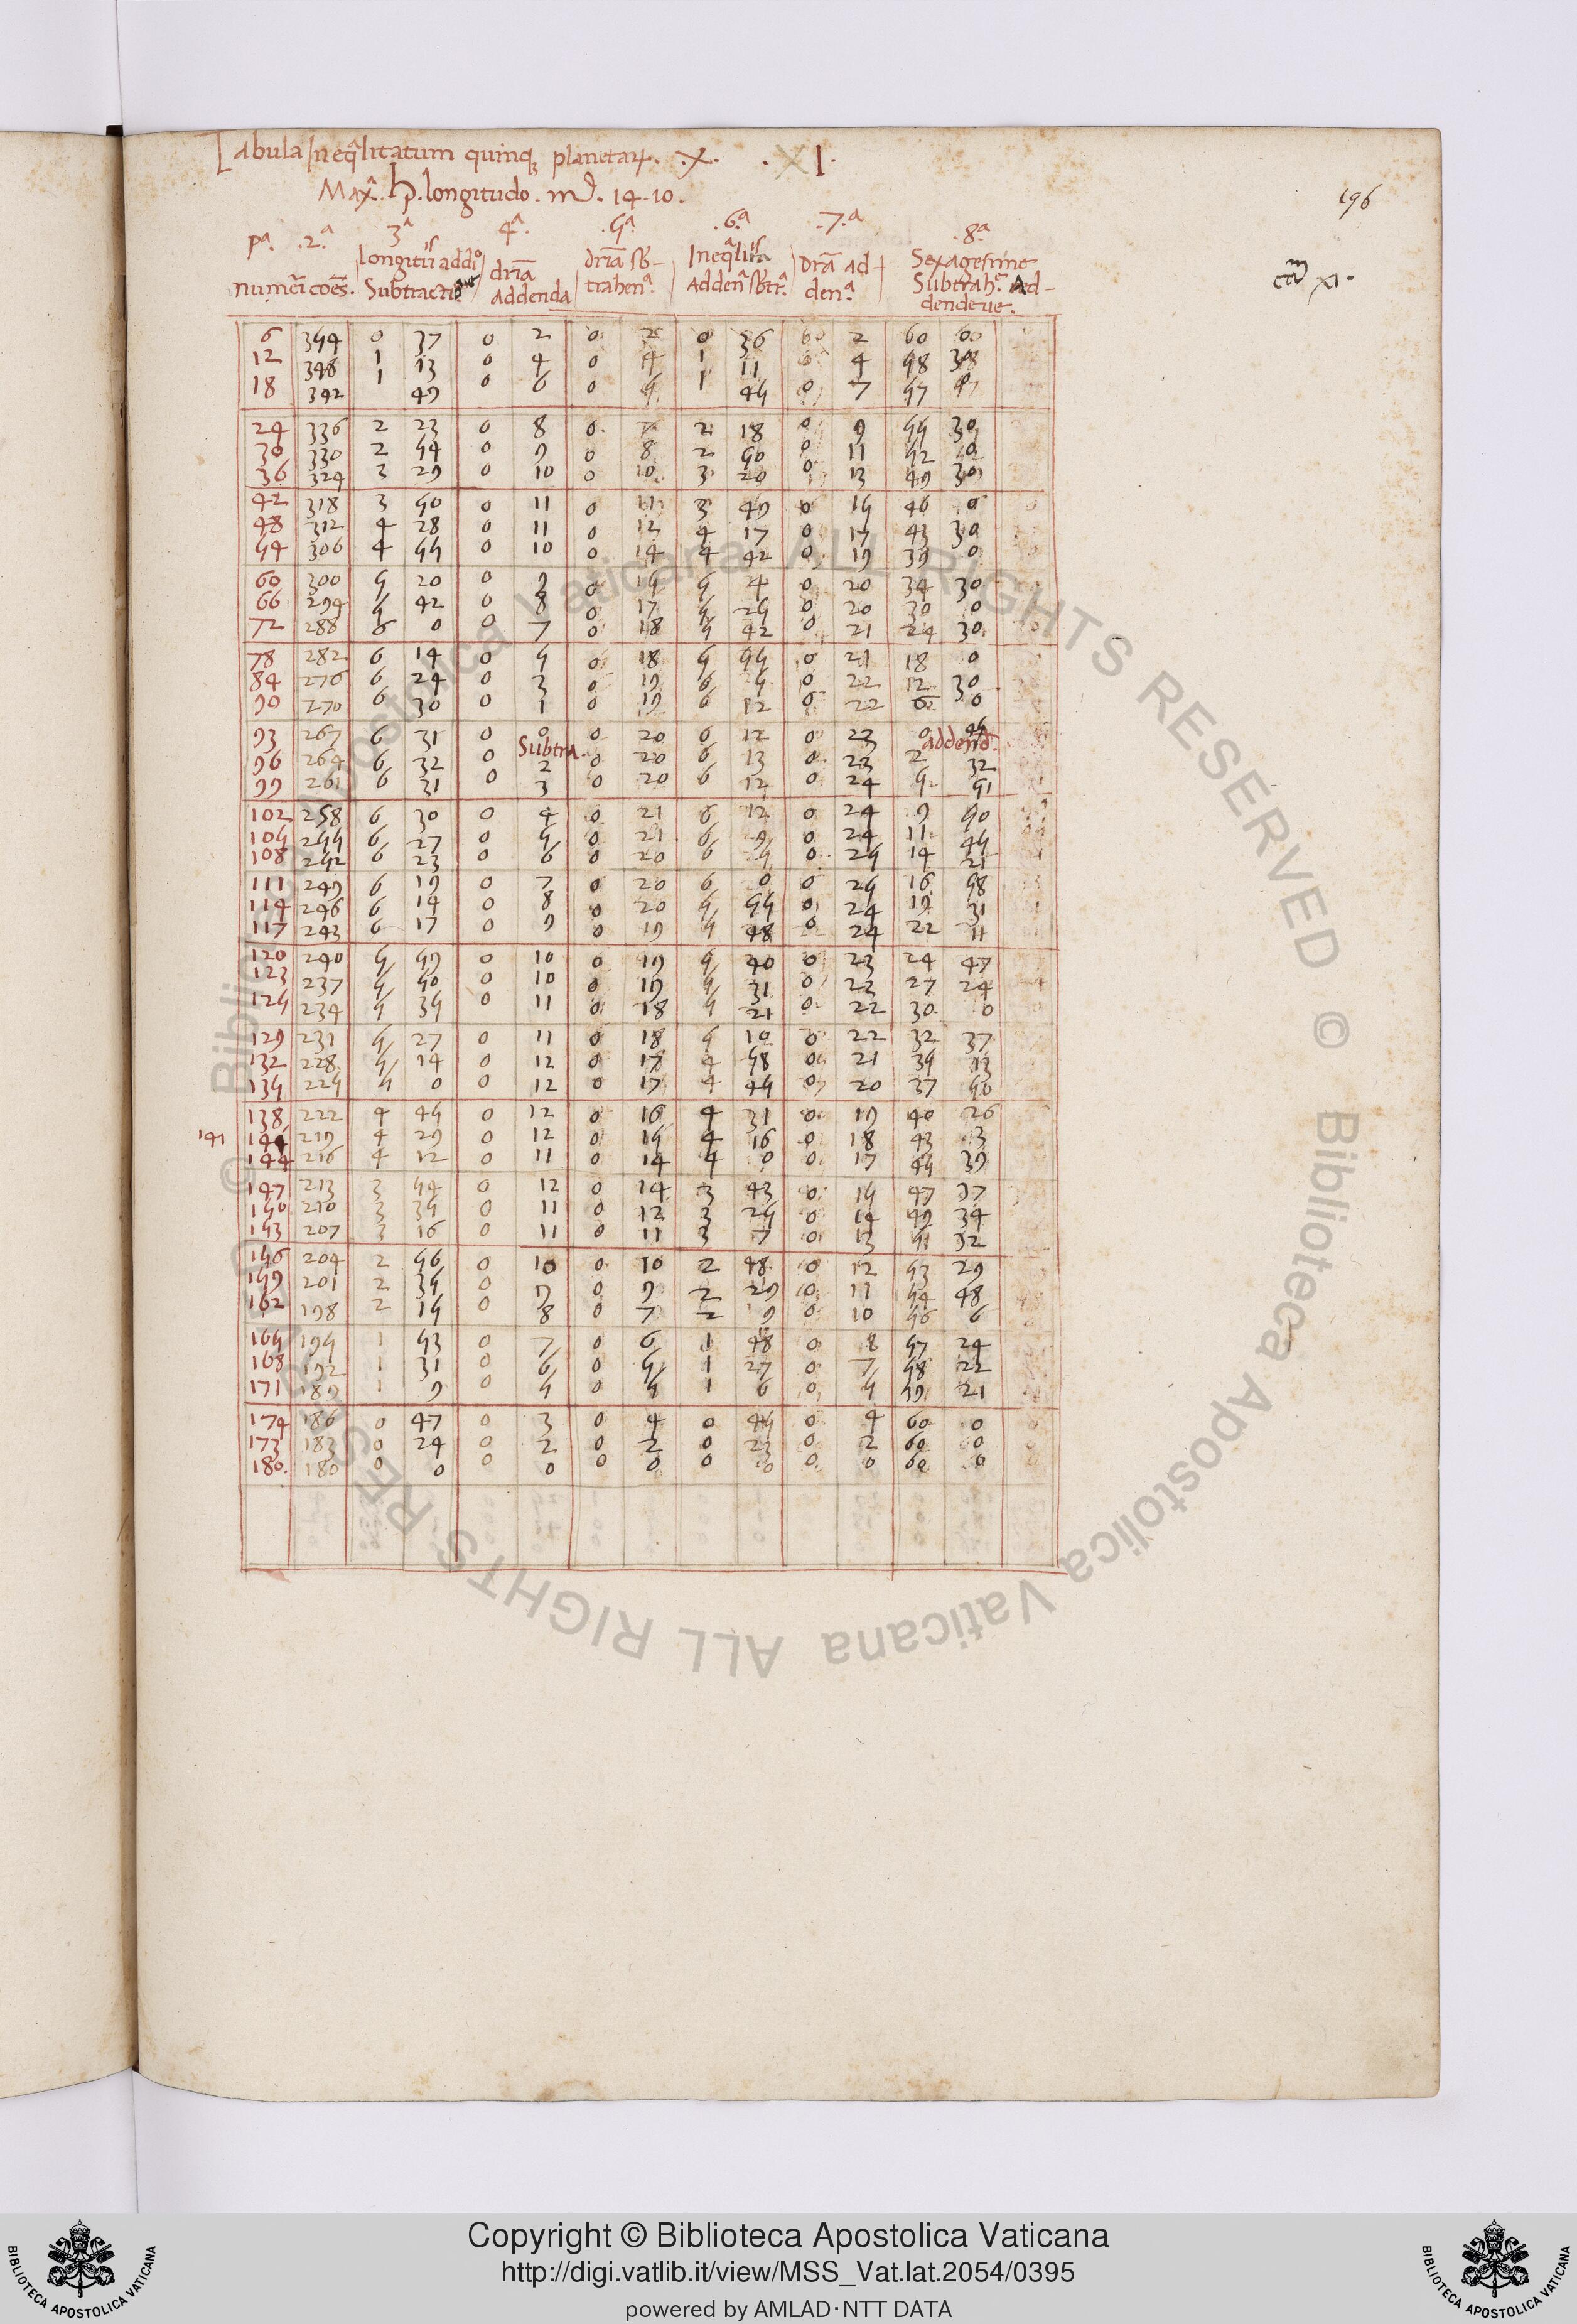 Tabula Ineq̄litatum quinq; planetaꝝ. .X. .XI.
Max.ᵃ ♄. longitudo. ♏. 14.10.
196
pᵃ. .2.ᵃ 3ᵃ 4ᵃ. .5ᵃ. .6.ᵃ .7.ᵃ .8.ᵃ
numeri coēs. driā addenda
Sexagesime
dendeue.
6 354 0 37 0 2 0 2 0 36 2 60
12 348 1 13 0 4 0 4 1 11 4 58
18 342 49 0 6 0 5 1 45 0 7 57
24 336 2 23 0 8 0 2 18 0 9 55 30
30 330 2 54 0 9 0 8 2 50 0 11 52 0
36 324 3 29 0 10 0 10 3 20 0 13 49 30
42 318 3 50 0 11 0 11 3 49 0 15 46 0
48 312 4 28 0 11 0 12 4 17 0 17 43 30
54 306 4 55 0 10 0 14 4 42 0 19 39 0
60 300 5 20 0 9 0 15 5 4 0 20 34 30
66 294 5 42 0 8 0 17 5 25 0 20 30 0
72 288 6 0 0 7 0 18 5 42 0 21 24 30
78 282 6 14 0 5 0 18 5 55 0 21 18 0
84 276 6 24 0 3 0 19 6 5 0 22 12 30
90 270 6 30 0 1 0 19 6 12 0 22 6 0
93 267 6 31 0 0 0 20 6 12 0 23 0
Subtra. addend.
96 264 6 32 0 2 0 20 6 13 0 23 2 32
99 261 6 31 0 3 0 20 6 12 0 24 5 51
102 258 6 30 0 4 0 21 6 12 0 24 9 50
105 255 6 27 0 5 0 21 6 9 0 24 11 45
108 252 6 23 0 6 0 20 6 5 0 25 14 21
111 249 6 19 0 7 0 20 6 0 0 25 16 58
114 246 6 14 0 8 0 20 5 55 0 24 19 31
117 243 6 17 0 9 0 19 5 48 0 24 22 11
120 240 5 59 0 10 0 19 5 40 0 23 24 47
123 237 5 50 0 10 0 19 5 31 0 23 27 24
125 234 5 39 0 11 0 18 5 21 0 22 30 0
129 231 5 27 0 11 0 18 5 10 0 22 32 37
132 228 5 14 0 12 0 17 4 58 0 21 35 13
135 225 5 0 0 12 0 17 4 45 0 20 37 50
138 222 4 45 0 12 0 16 4 31 0 19 40 26
141 219 4 29 0 12 0 15 4 16 0 18 43 3
144 216 4 12 0 11 0 14 4 0 0 17 45 39
147 213 3 54 0 12 0 14 3 43 0 15 47 37
150 210 3 35 0 11 0 12 3 25 0 14 49 34
153 207 3 16 0 11 0 11 3 7 0 13 51 32
156 204 2 56 0 10 0 10 2 48 0 12 53 29
159 201 2 35 0 9 0 9 2 29 0 11 54 48
162 198 2 15 0 8 0 7 2 9 0 10 56 6
165 195 1 53 0 7 0 6 1 48 0 8 57 24
168 192 1 31 0 6 0 5 1 27 0 7 58 22
171 189 1 9 0 5 0 5 1 6 0 5 59 21
174 186 0 47 0 3 0 4 0 45 0 4 60 0
173 183 0 24 0 2 0 2 0 23 0 2 60 0
180. 180 0 0 0 0 0 0 0 0 0 0 60 0
© Biblioteca Apostolica Vaticana ALL RIGHTS RESERVED © Biblioteca Apostolica Vaticana ALL RIGHTS RESERVED
Copyright © Biblioteca Apostolica Vaticana
http://digi.vatlib.it/view/MSS_Vat.lat.2054/0395
powered by AMLAD·NTT DATA
BIBLIOTECA APOSTOLICA VATICANA
BIBLIOTECA APOSTOLICA VATICANA